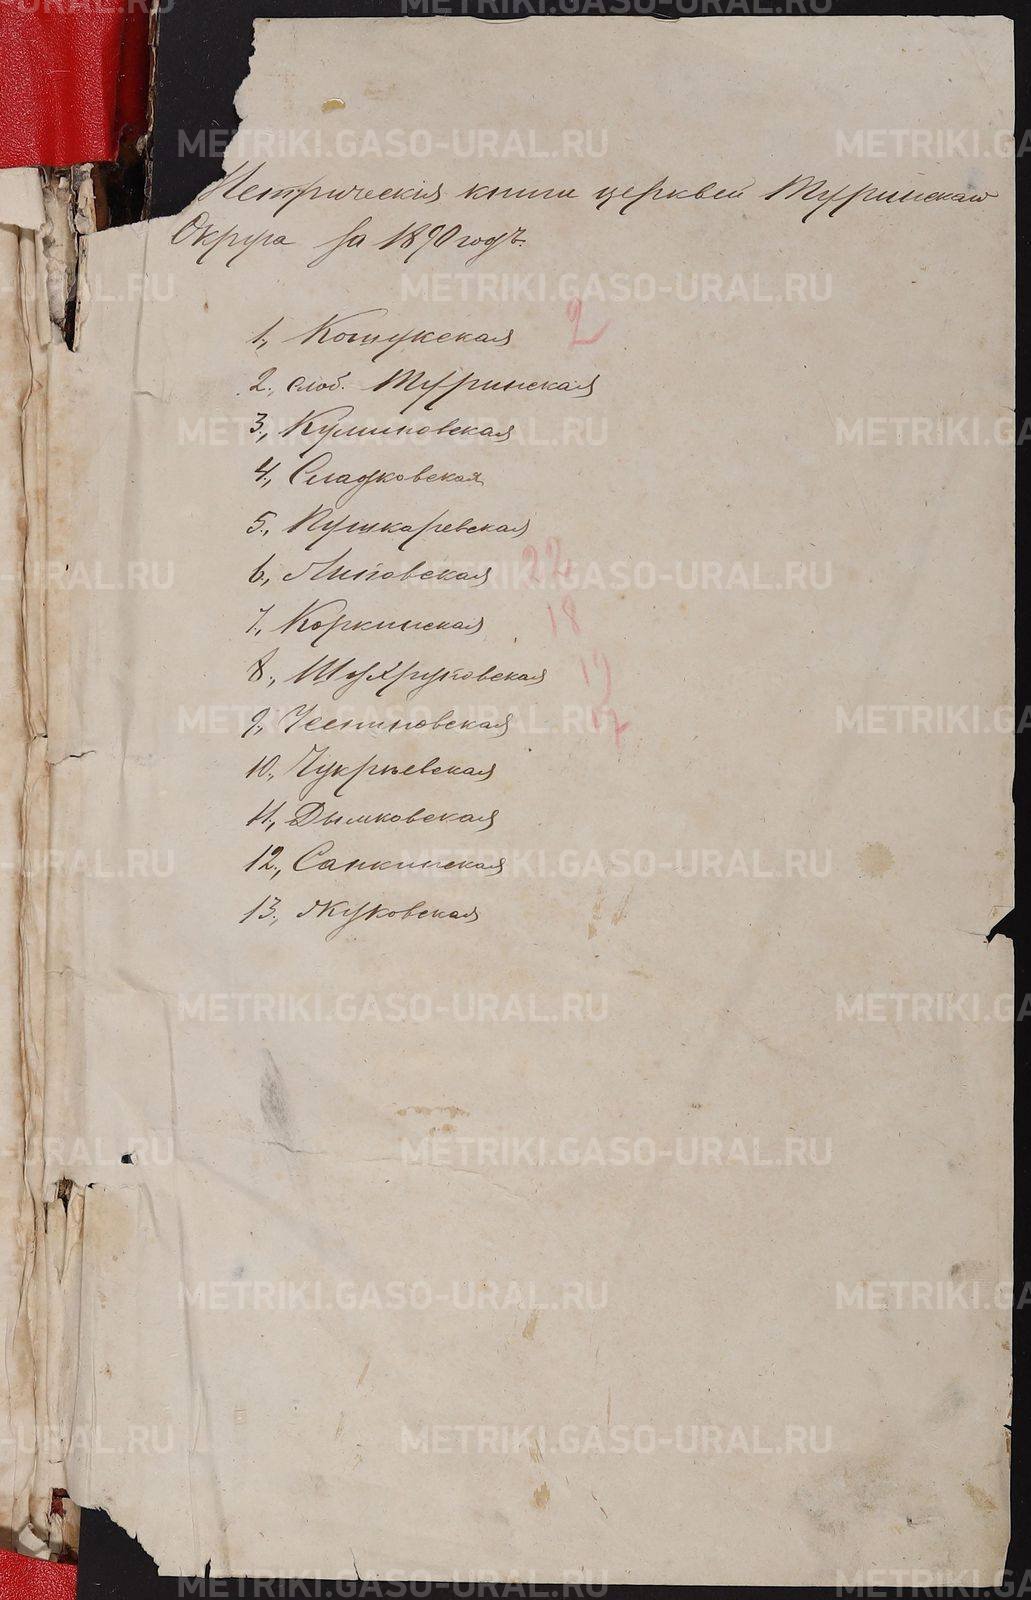 Метрическія книги церквей Туринскаго
Округа за 1890 годъ.
1., Кошукская 2
2., слоб. Туринская
3., Куминовская
4., Сладковская
5., Пушкаревская
6., Липовская 22
7., Коркинская 18
8., Шухруповская
9., Усениновская
10., Чукреевская
11., Дымковская
12., Санкинская
13., Жуковская
METRIKI.GASO-URAL.RU